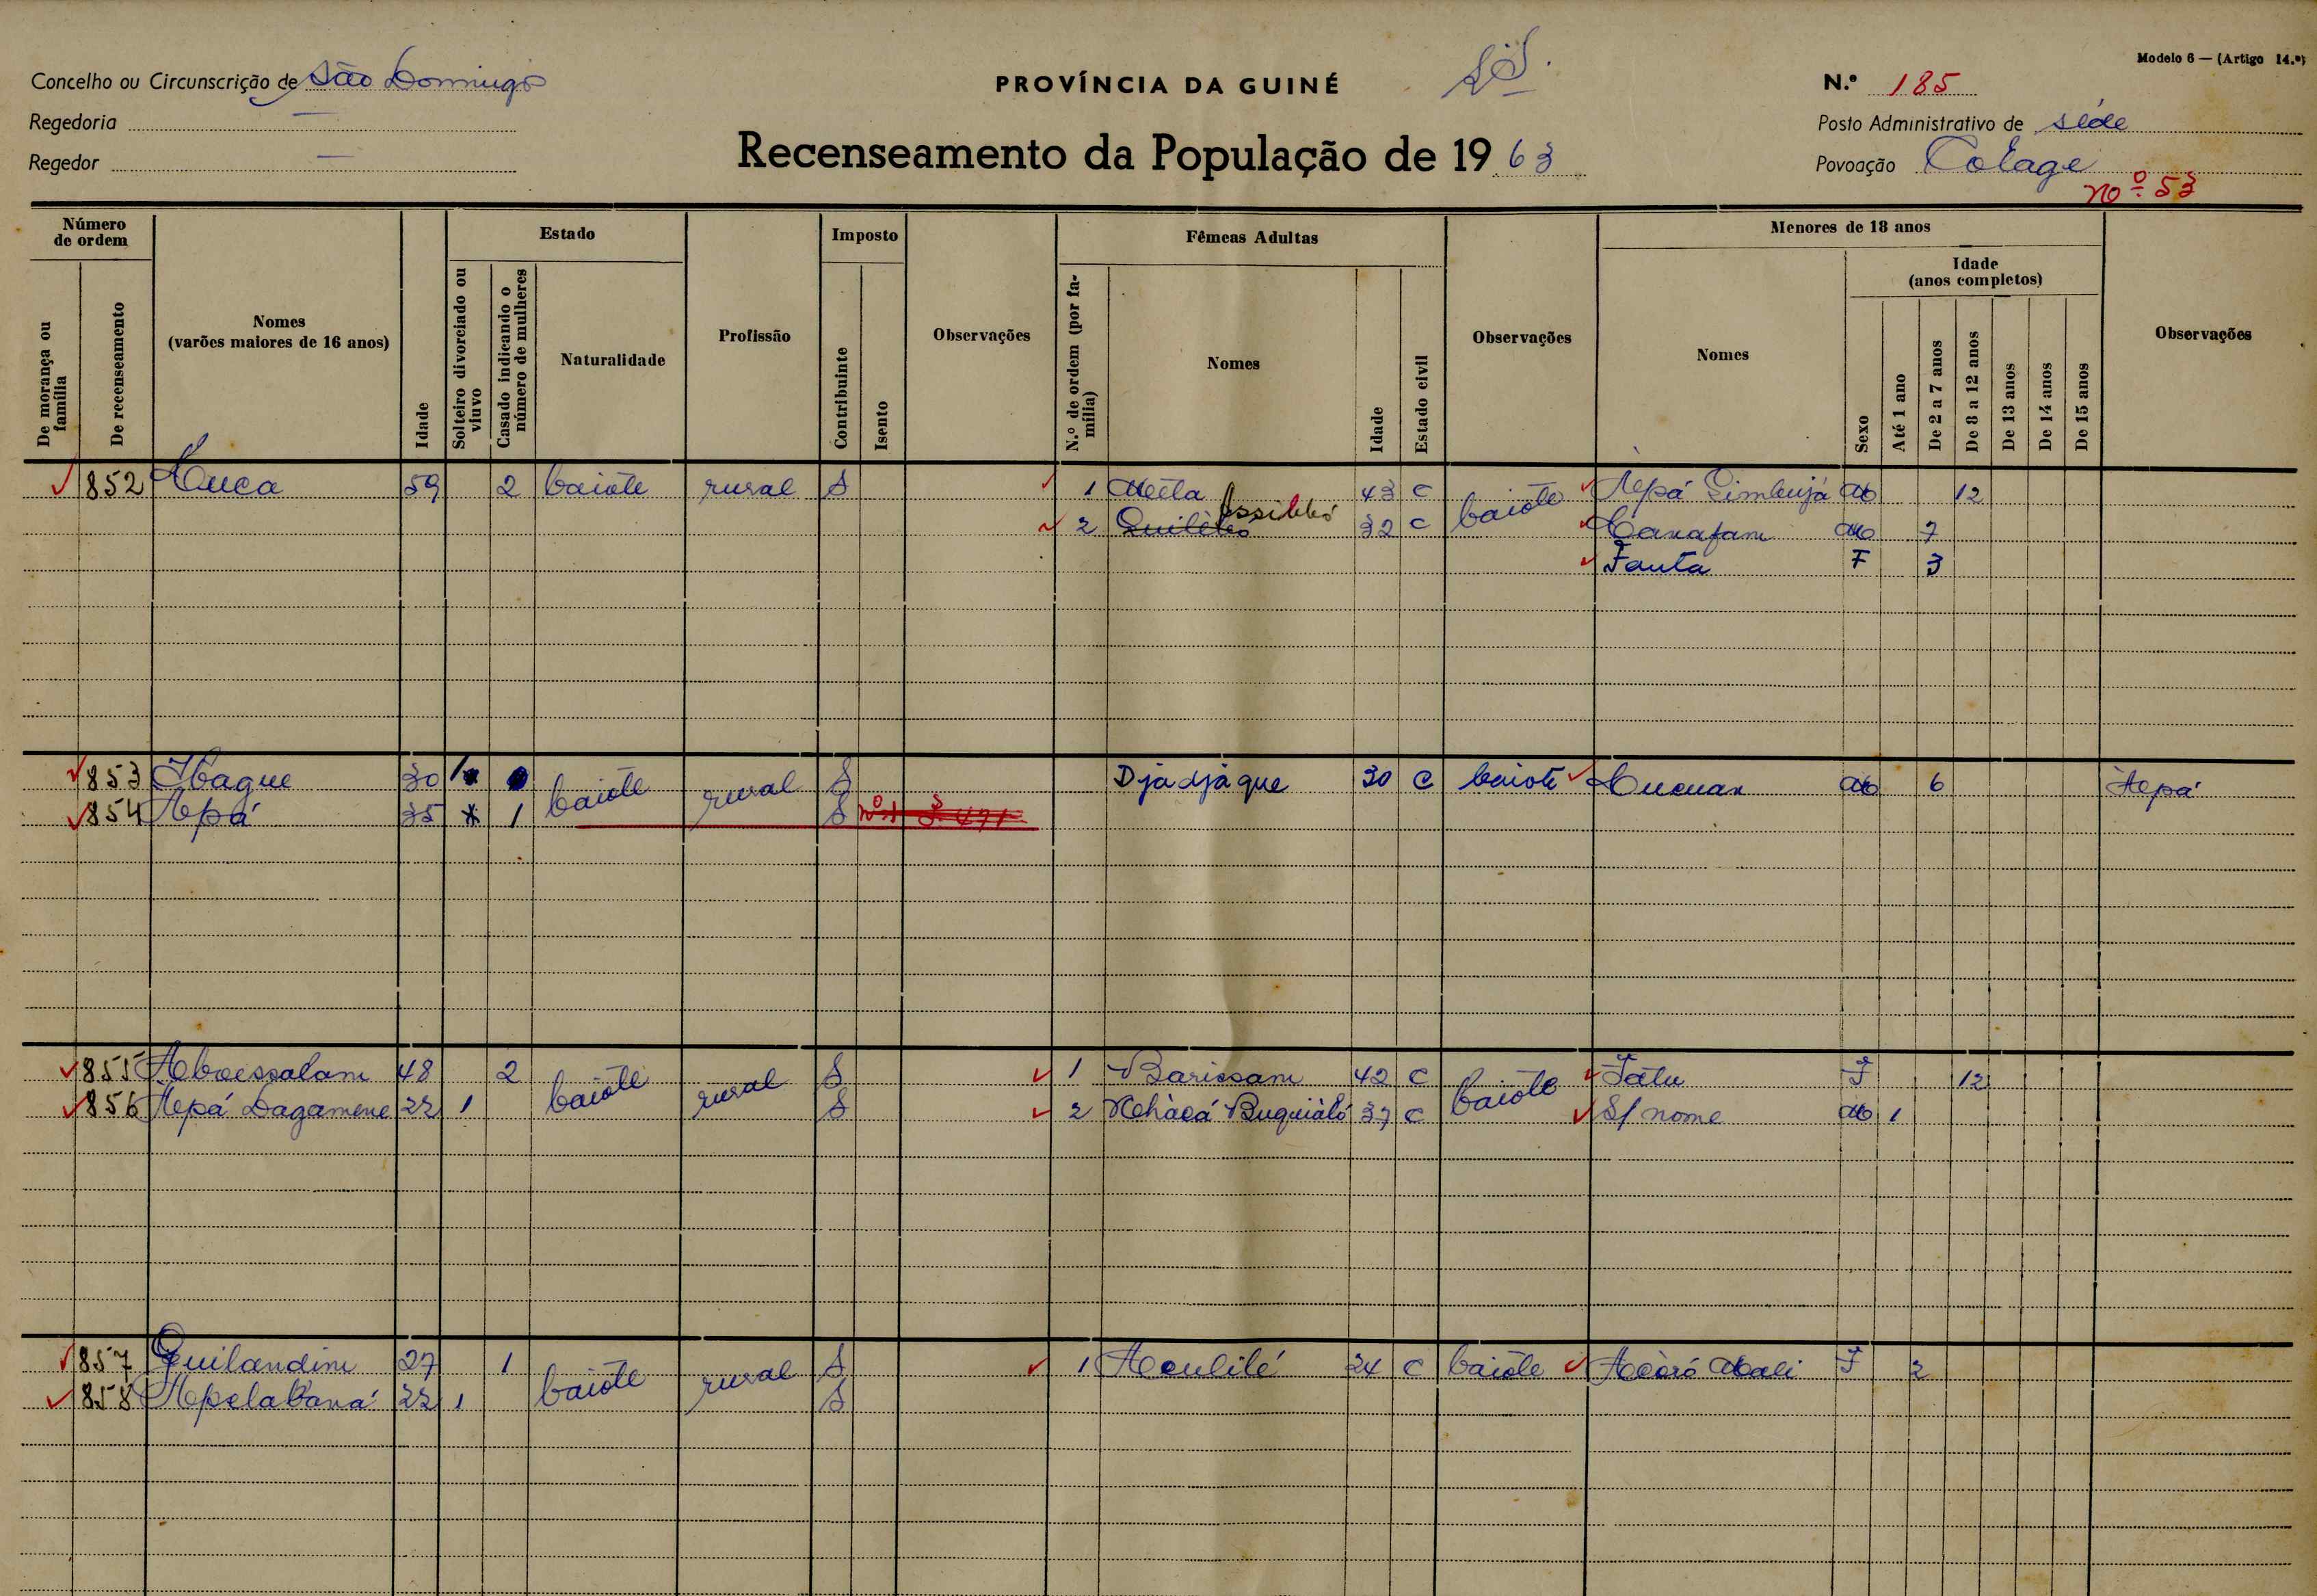 Modelo 6 — (Artigo 14.º)
Concelho ou Circunscrição de São Domingos
PROVÍNCIA DA GUINÉ
N.º 185
Regedoria —
Posto Administrativo de séde
Regedor —
Recenseamento da População de 1963
Povoação Colage
nº 53
Número de ordem
Estado
Imposto
Fêmeas Adultas
Menores de 18 anos
Idade (anos completos)
De morança ou família
De recenseamento
Nomes (varões maiores de 16 anos)
Idade
Solteiro divorciado ou viuvo
Casado indicando o número de mulheres
Naturalidade
Profissão
Contribuinte
Isento
Observações
N.º de ordem (por família)
Nomes
Idade
Estado civil
Observações
Nomes
Sexo
Até 1 ano
De 2 a 7 anos
De 8 a 12 anos
De 13 anos
De 14 anos
De 15 anos
Observações
852 59 2 baiote rural S 1 43 C baiote Apá M 12
2 32 C M 7
Fanta F 3
853 Ibague 30 baiote rural S Djadjáque 30 C baiote M 6 Apá
854 Apá 35 1 S
855 48 2 baiote rural S 1 Barissam 42 C baiote Fatu F 12
856 Apá Dagamene 22 1 S 2 37 C S/ nome M 1
857 Quilandim 27 1 baiote rural S 1 24 C baiote F 2
858 22 1 S